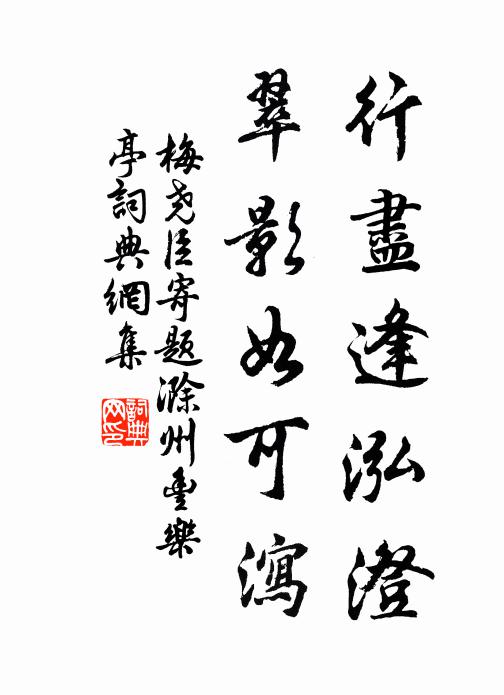 行盡逢泓澄
翠影如可瀉
梅堯臣寄題滁州豊樂
亭詞典網集
詞典
网印